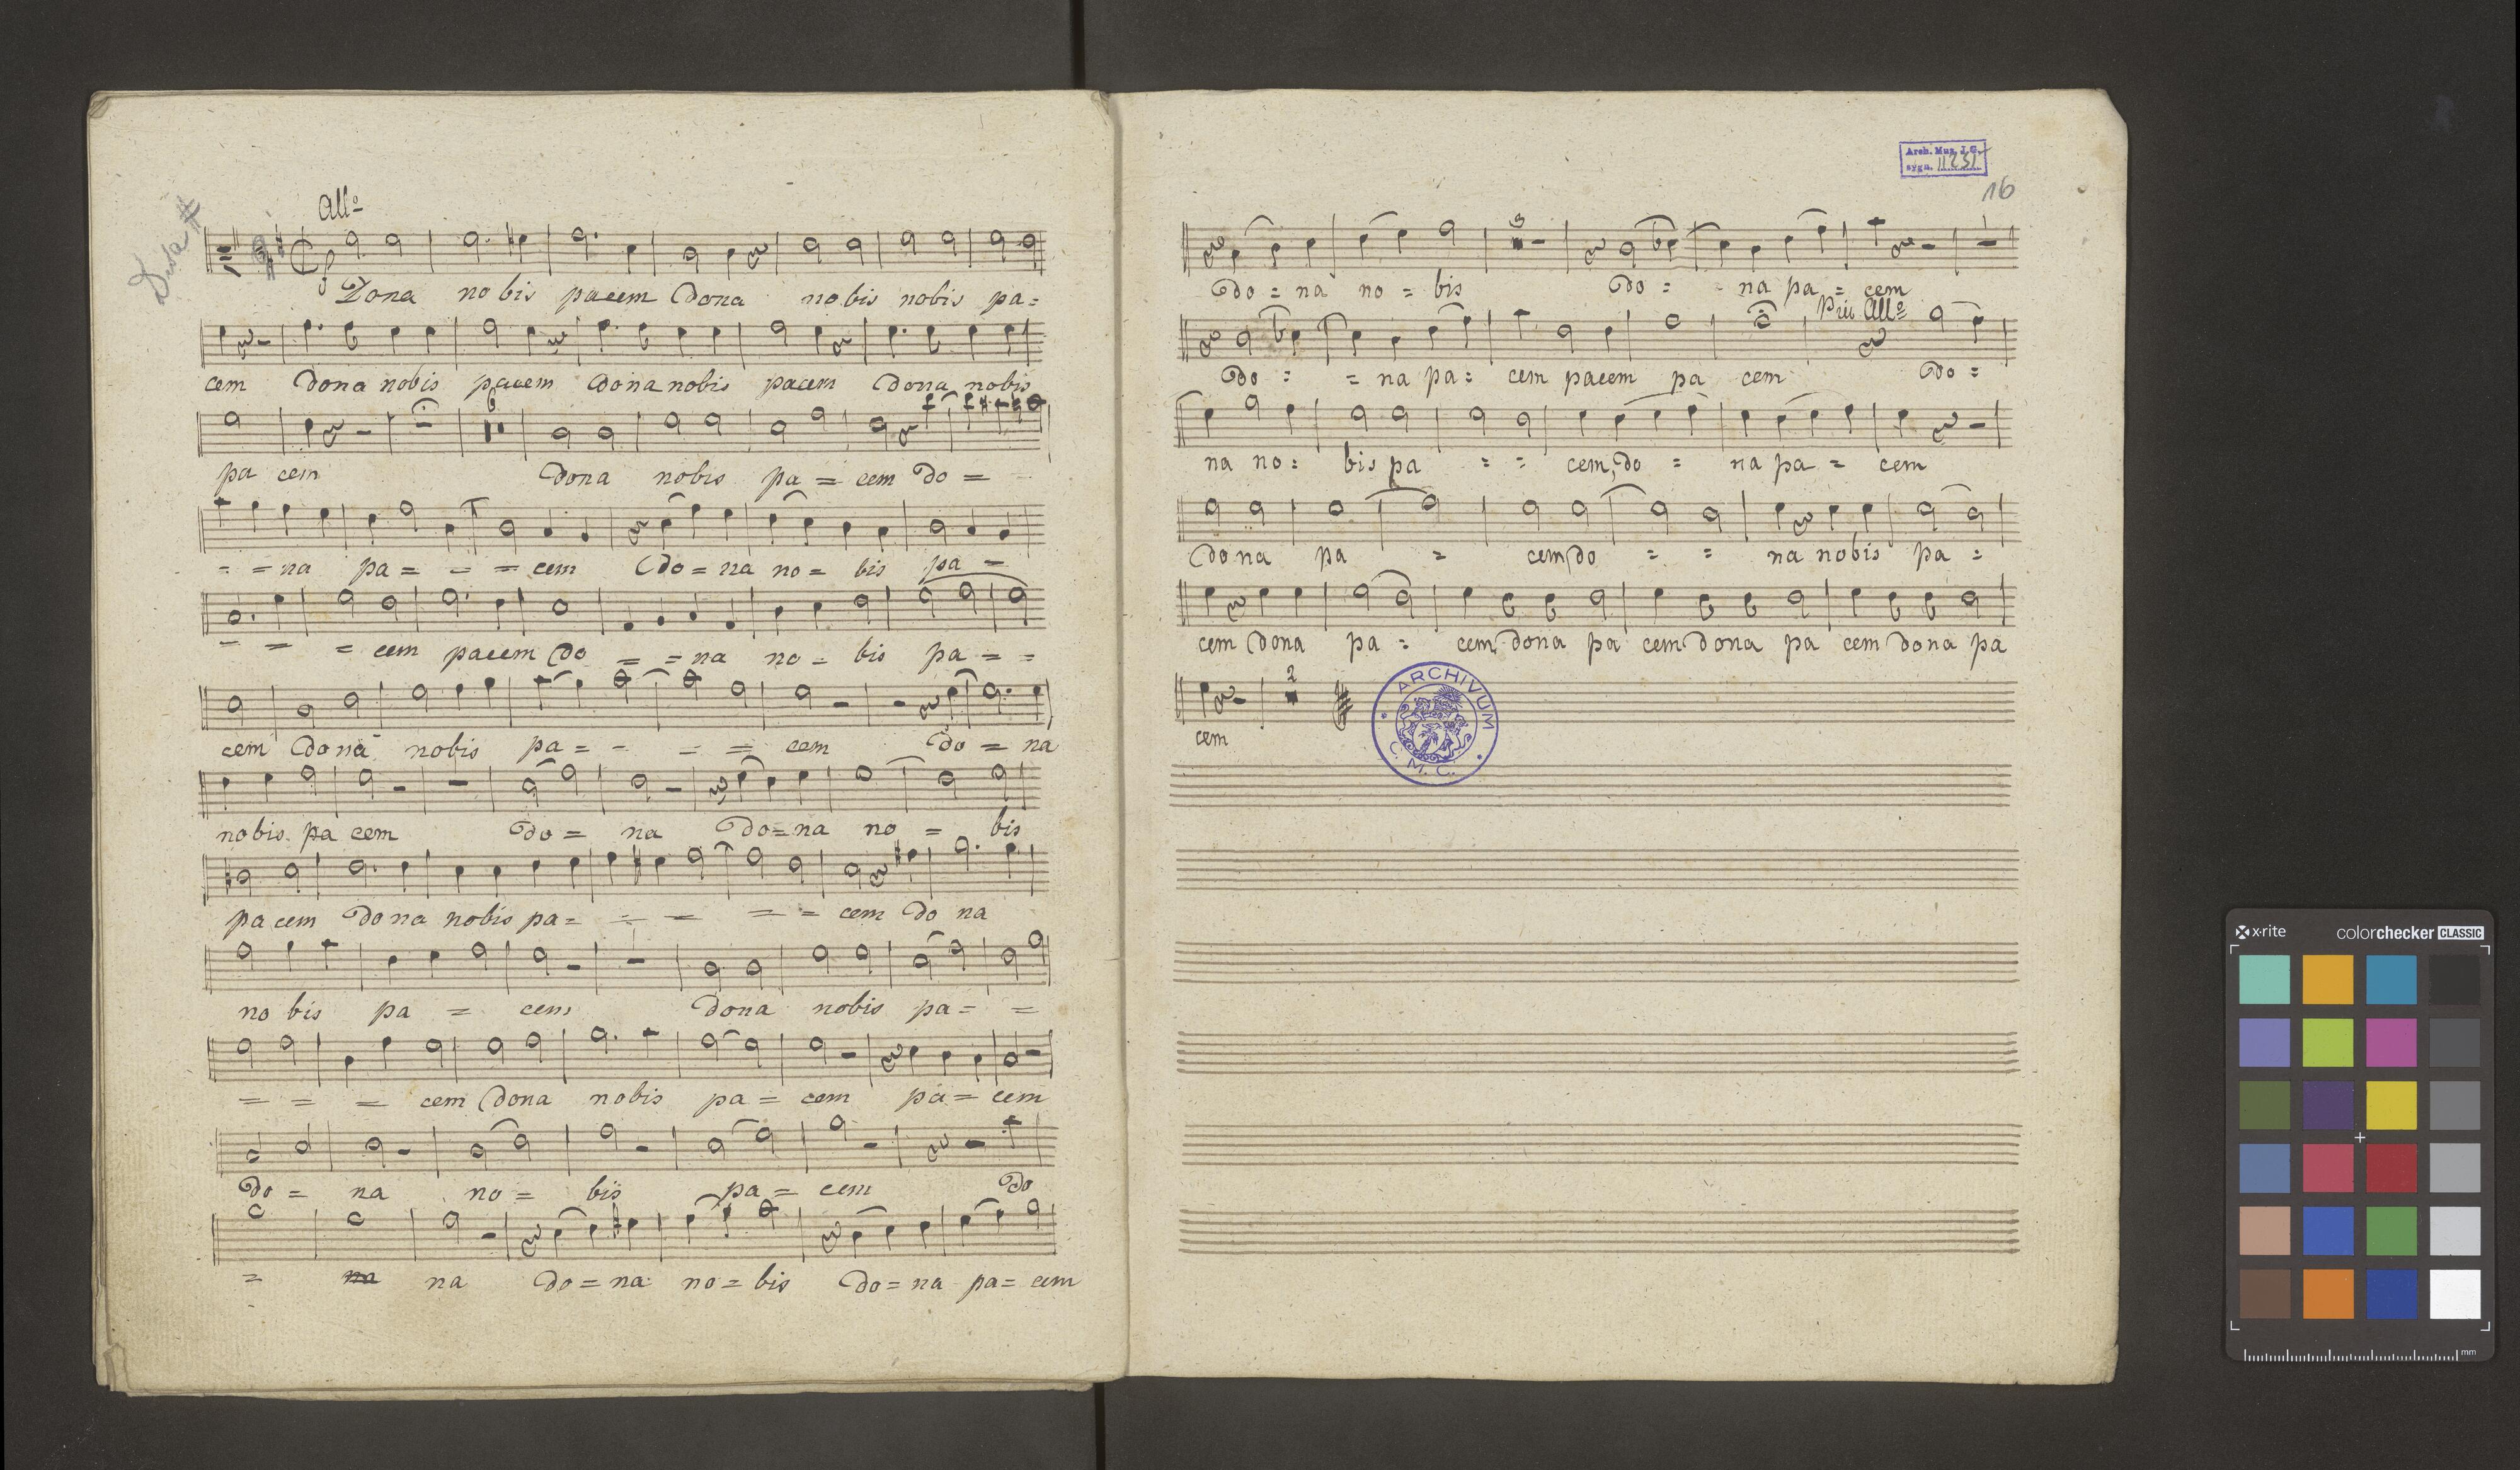 All°
Dona no bis pacem Dona nobis nobis pa=
cem Dona nobis pacem Dona nobis pacem Dona nobis
6
pa cem Dona nobis pa = cem Do =
= = na pa = - = cem Do = na no = bis pa =
- = = cem pacem Do = = na no = bis pa = =
cem Dona nobis pa = - = = cem Do = na
nobis pa cem Do = na Do = na no = bis
pa cem Do na nobis pa = = = = = cem Do na
no bis pa = cem Dona nobis pa = =
= = = cem Dona nobis pa = cem pa = cem
Do = na no = bis pa = cem Do
= na na Do = na no = bis Do = na pa = cem
Arch. Muz. J.G.
sygn.
16
Do = na no = bis Do = - na pa = cem
Più All°
Do = = na pa = cem pacem pa cem Do =
na no = bis pa = = cem, Do = na pa = cem
Dona pa = cem, Do = = na nobis pa =
cem Dona pa = cem, Dona pa cem Dona pa cem Dona pa
2
cem
ARCHIVUM
C. M. C.
x·rite colorchecker CLASSIC
mm